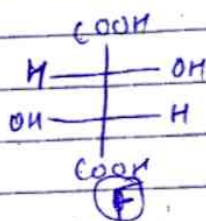 COOH
H OH
OH H
COOH
F